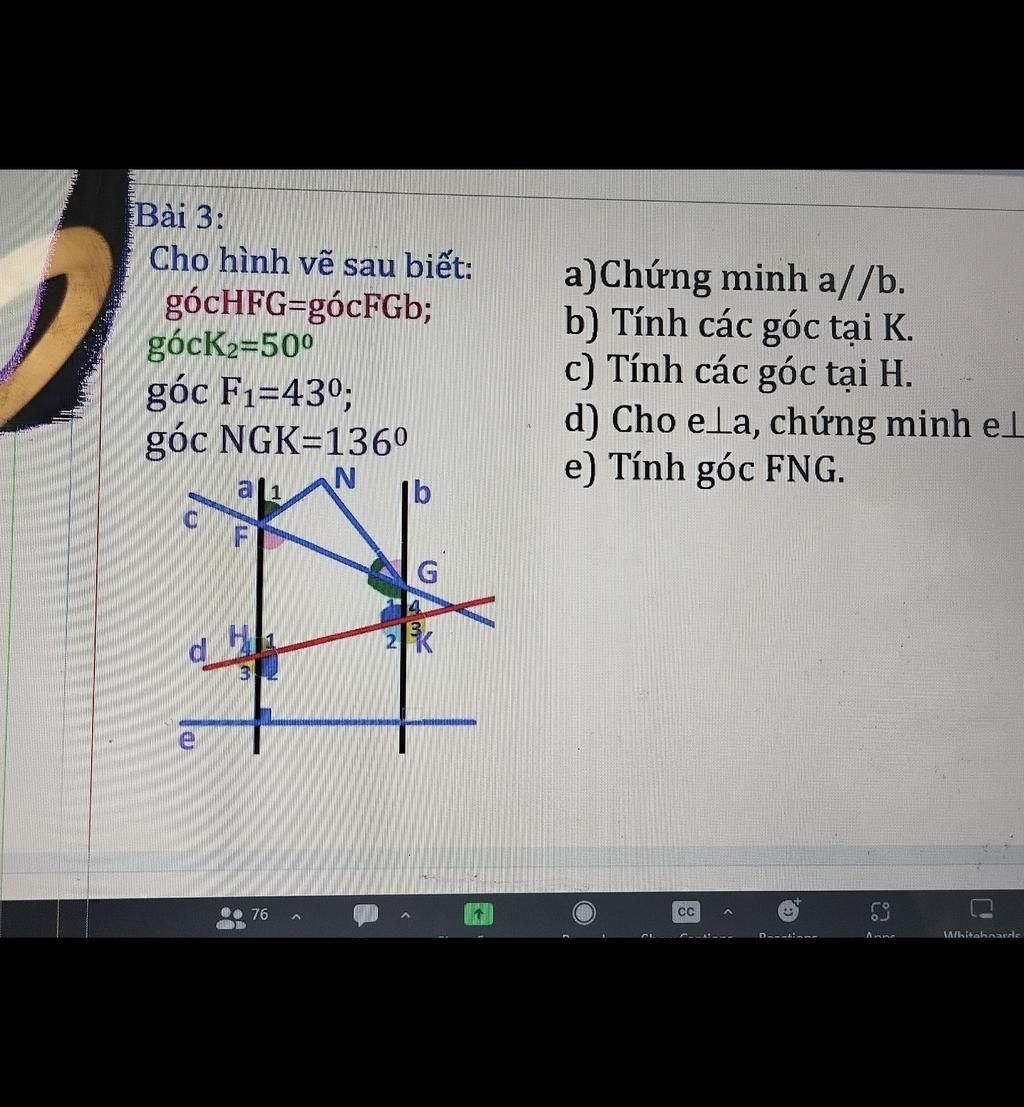 Bài 3:
Cho hình vẽ sau biết:
gócHFG=gócFGb;
gócK₂=50⁰
góc F₁=43⁰;
góc NGK=136⁰
a)Chứng minh a//b.
b) Tính các góc tại K.
c) Tính các góc tại H.
d) Cho e⊥a, chứng minh e⊥
e) Tính góc FNG.
a 1 N b
c F
G
1 4
d H 4 1 2 3 K
3 2
e
76
CC
Apps
Whiteboards